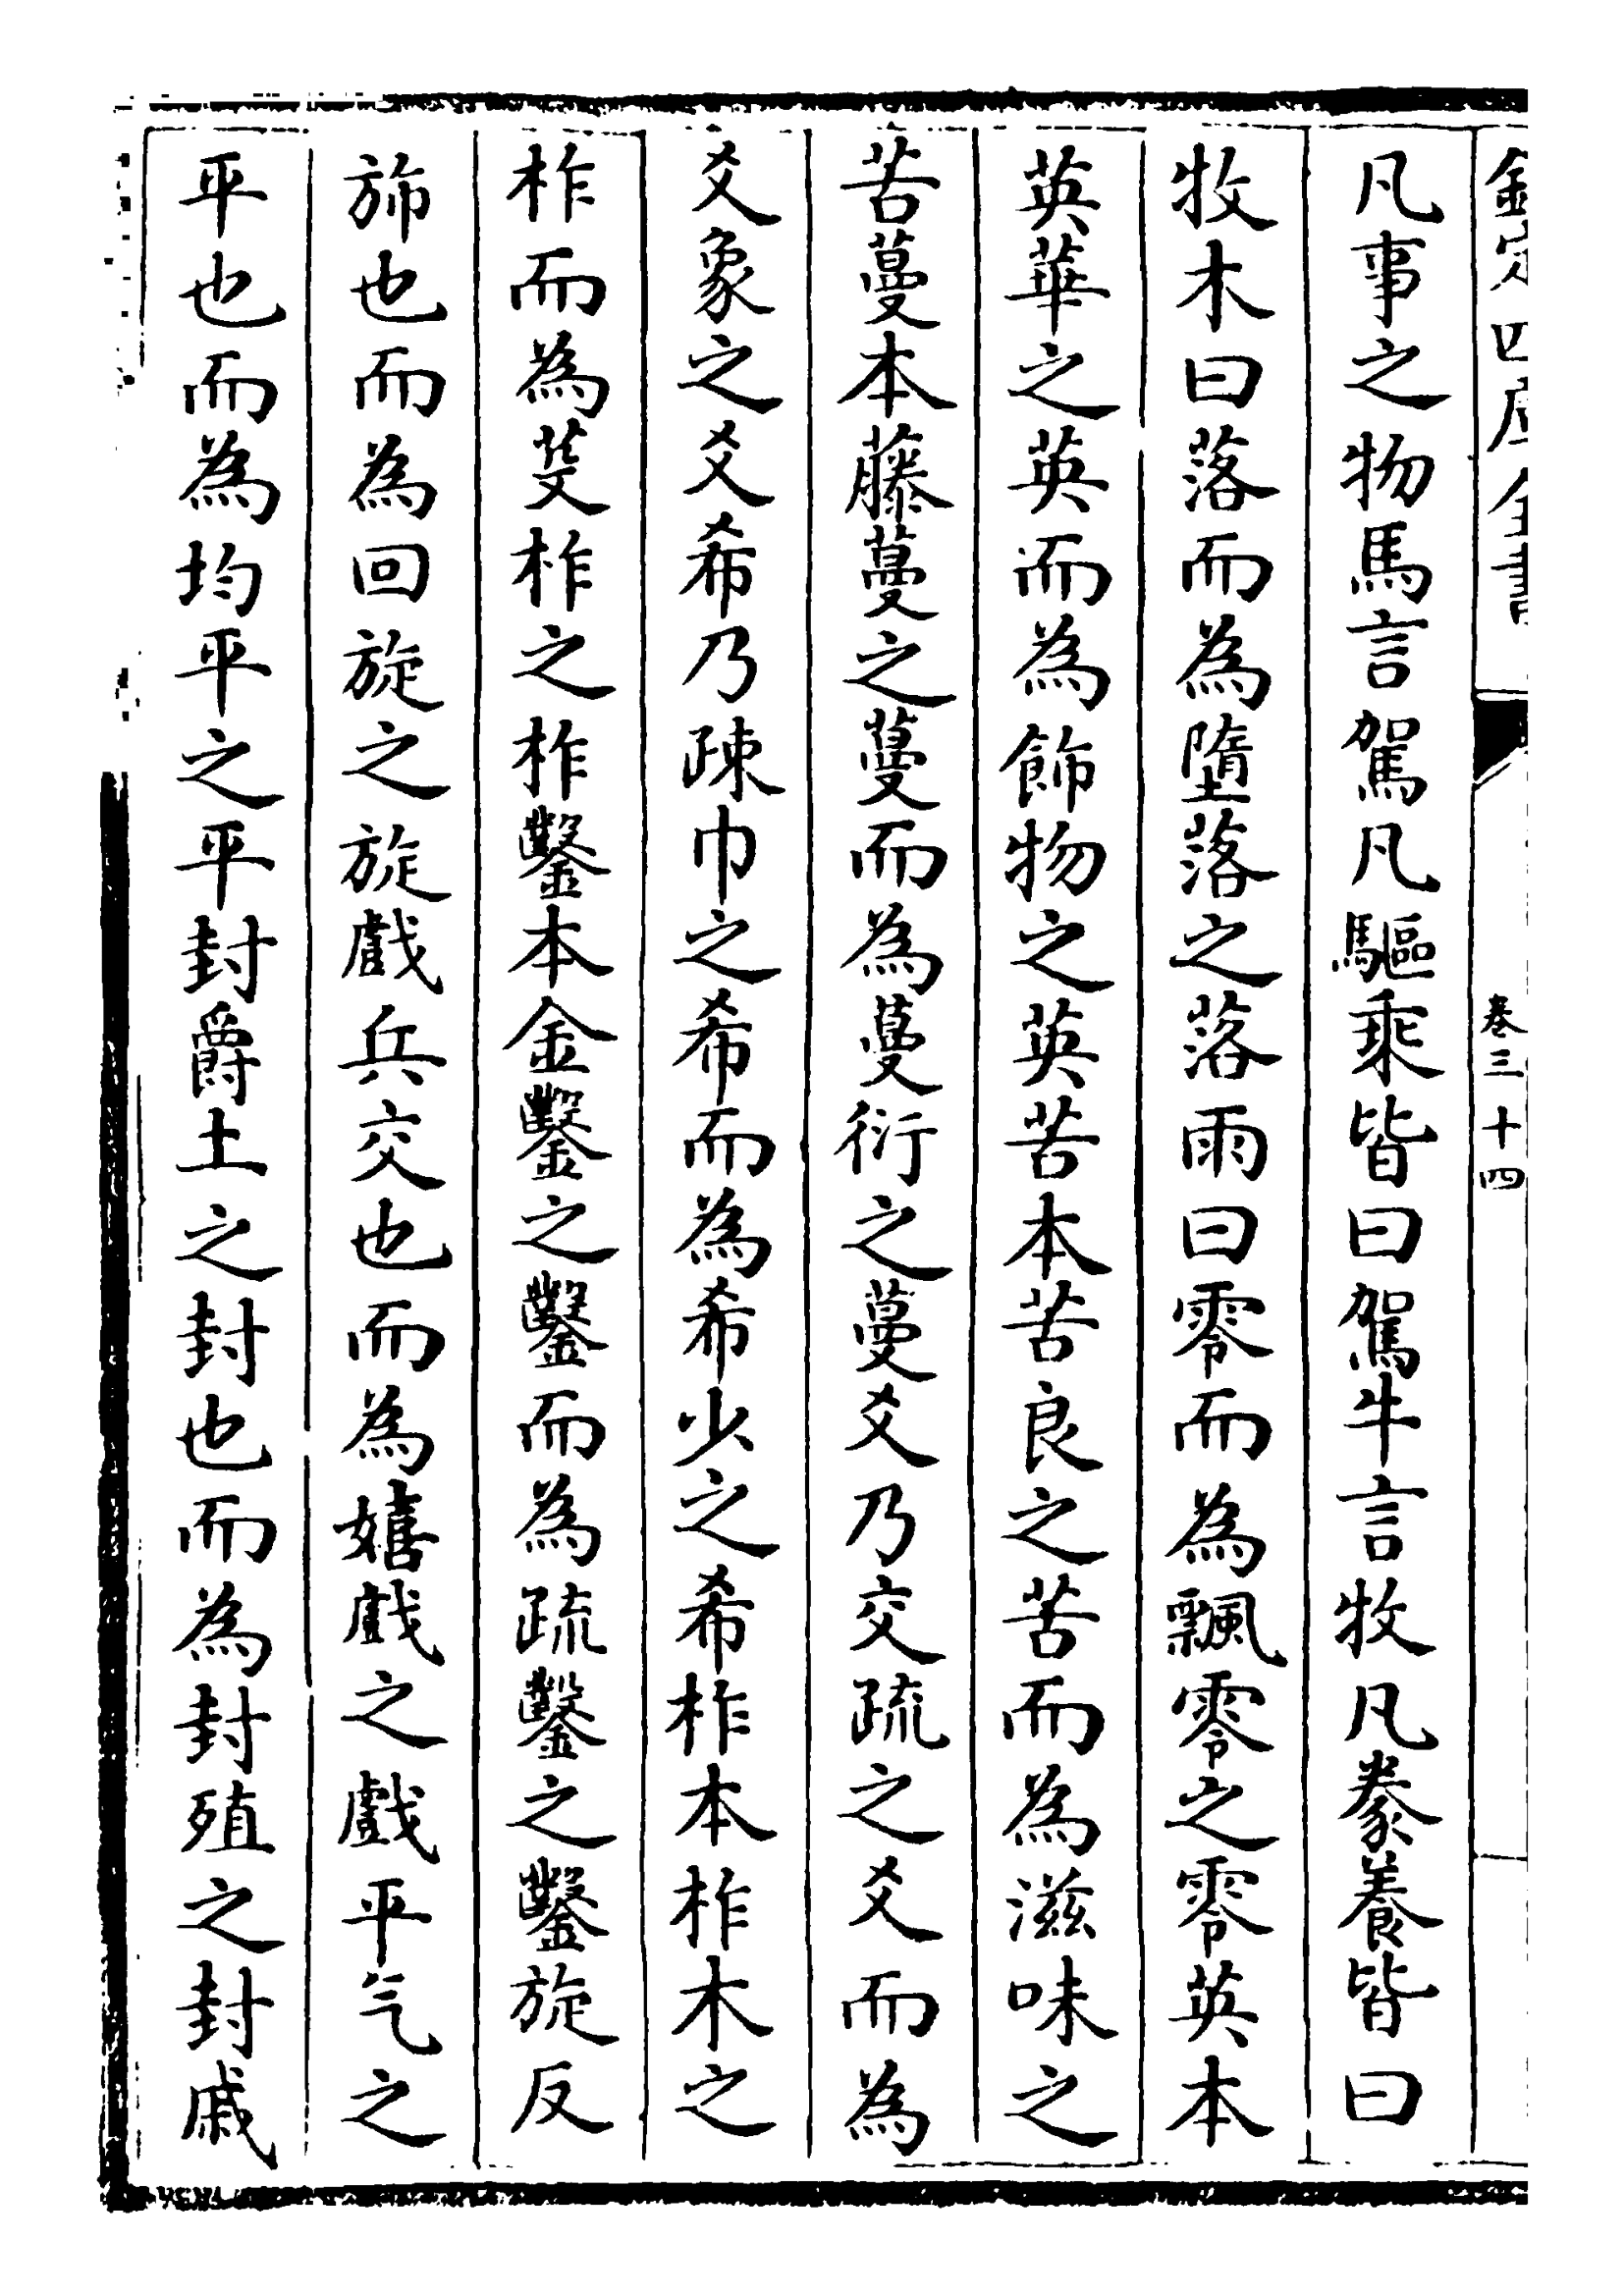 欽定四庫全書
卷三十四
凡事之物馬言駕凡驅乘皆曰駕牛言牧凡豢養皆曰
牧木曰落而為墮落之落雨曰零而為飄零之零英本
英華之英而為飾物之英苦本苦良之苦而為滋味之
苦蔓本藤蔓之蔓而為蔓衍之蔓爻乃交疏之爻而為
爻象之爻希乃疎巾之希而為希少之希柞本柞木之
柞而為芟柞之柞鑿本金鑿之鑿而為疏鑿之鑿旋反
斾也而為回旋之旋戲兵交也而為嬉戲之戲平气之
平也而為均平之平封爵土之封也而為封殖之封戚